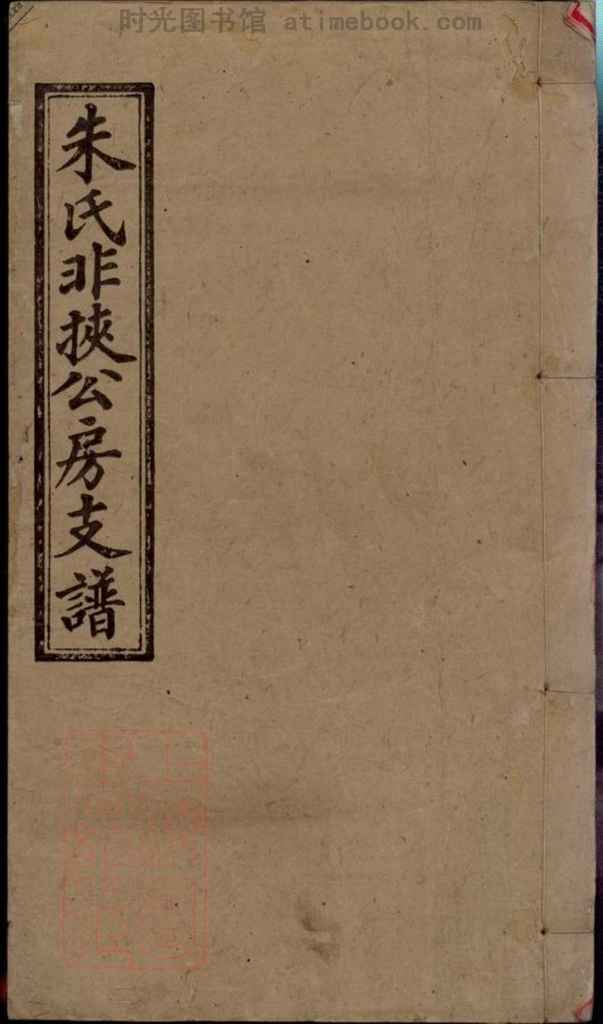 时光图书馆 atimebook.com
朱氏非挾公房支譜